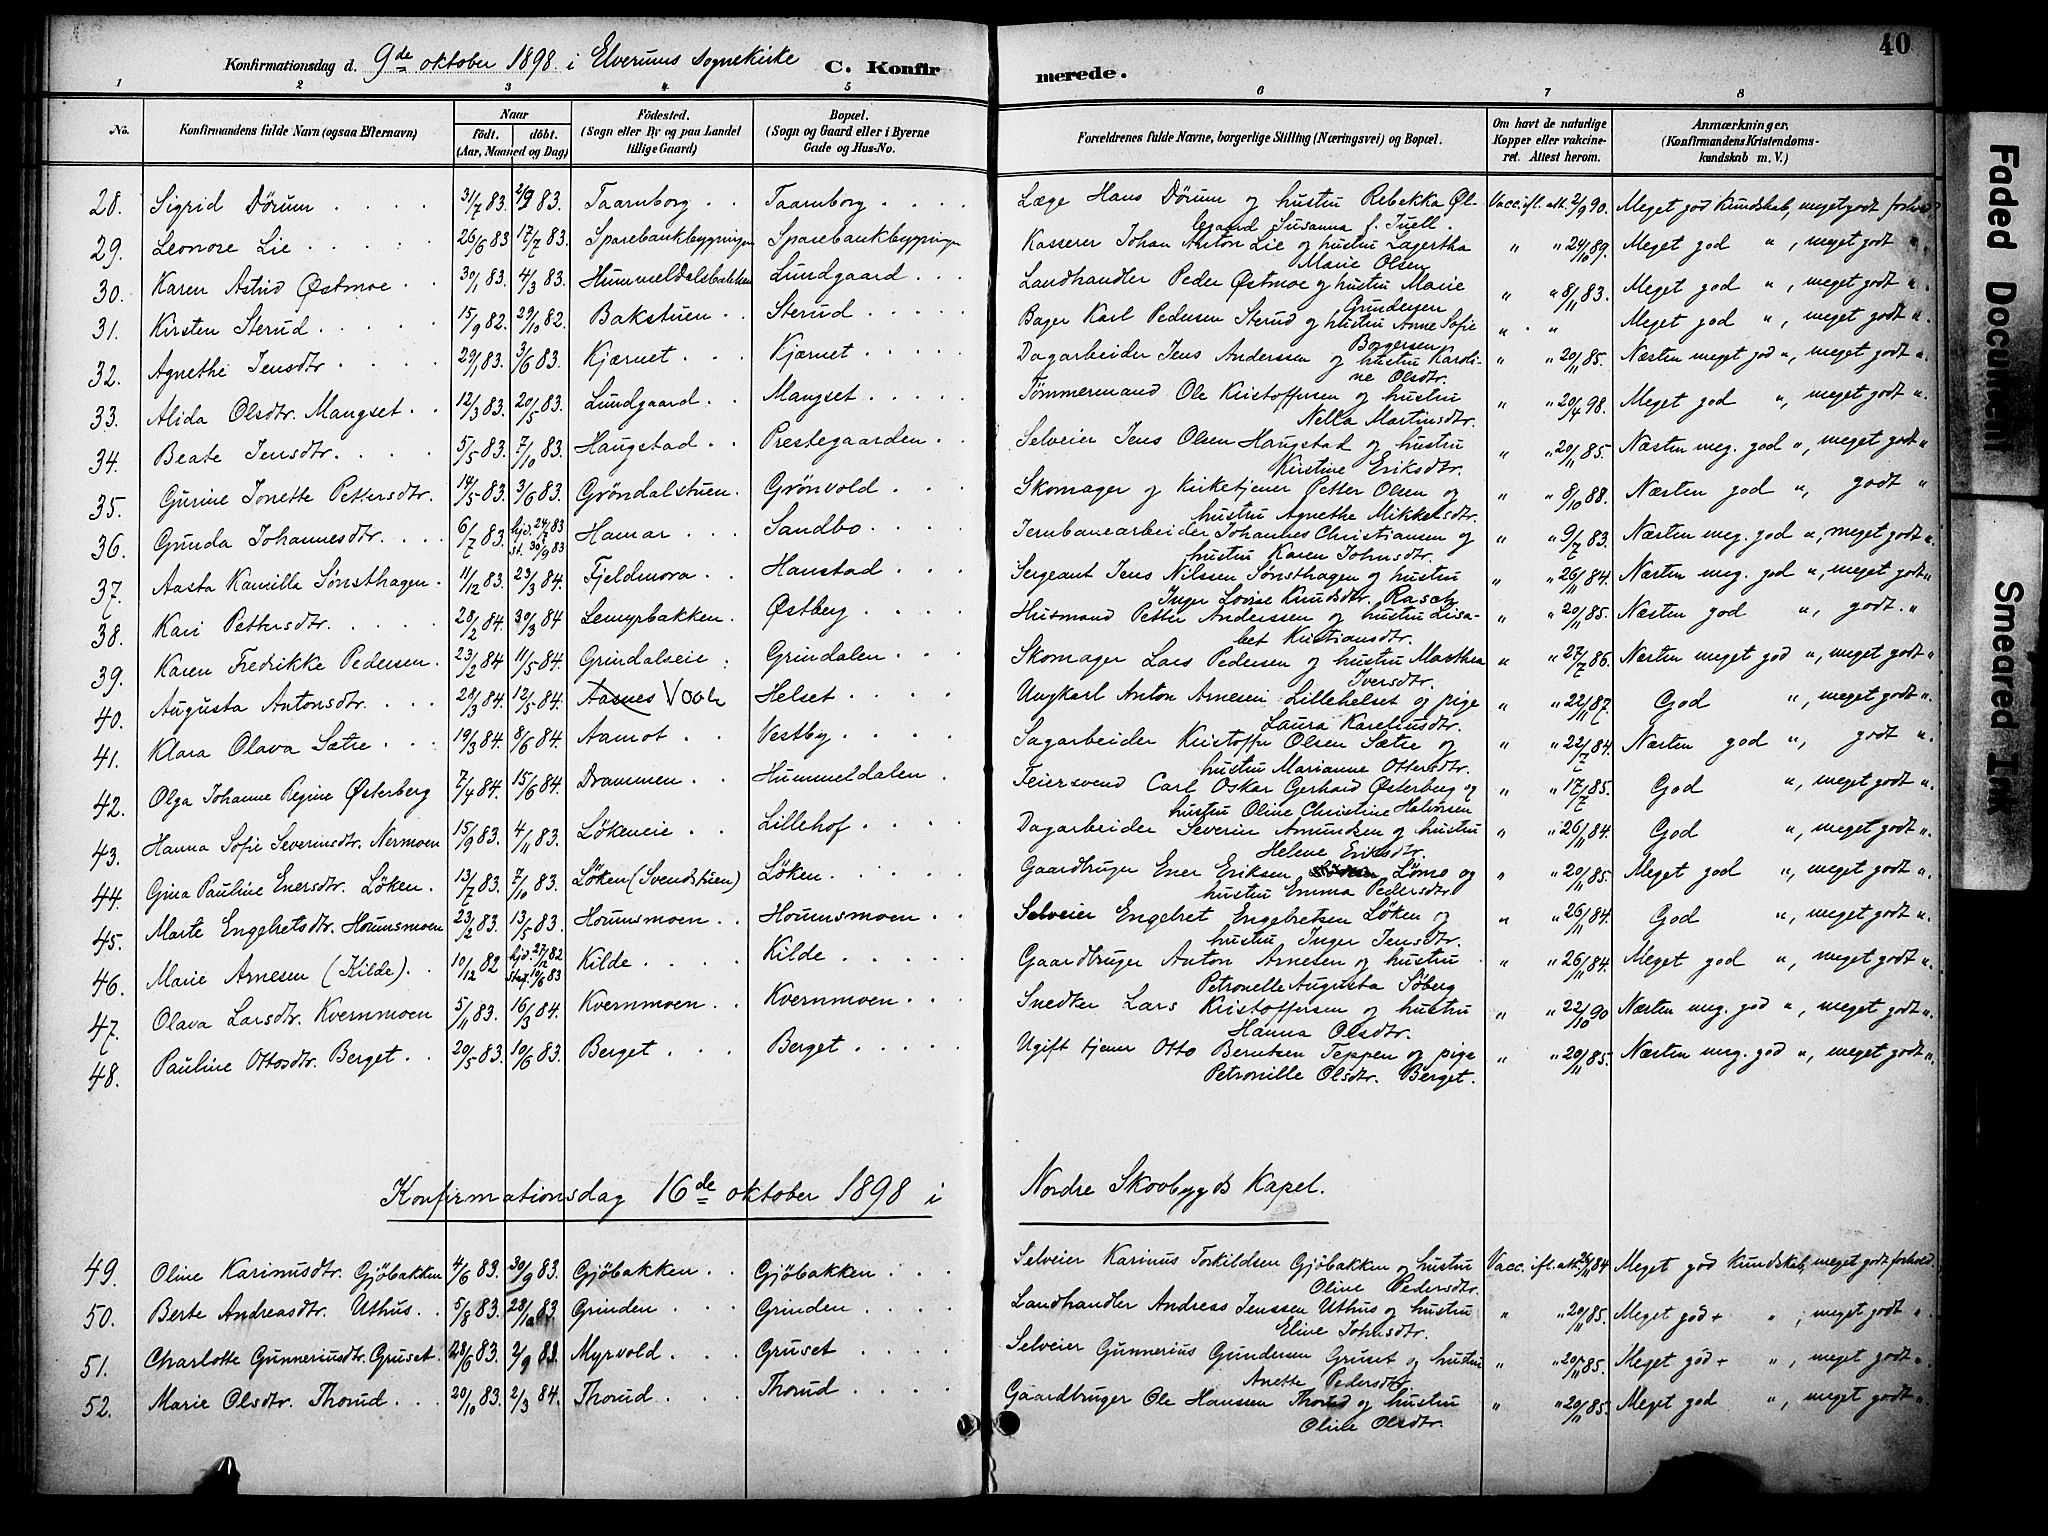 40
Konfirmationsdag d. 9de oktober 1898 i Elverums Sognekirke C. Konfirmerede.
1 2 3 4 5 6 7 8
No. Konfirmandens fulde Navn (ogsaa Efternavn) Naar født. døbt. (Aar, Maaned og Dag) Fødested. (Sogn eller By og paa Landet tillige Gaard) Bopæl. (Sogn og Gaard eller i Byerne Gade og Hus-No. Forældrenes fulde Navne, borgerlige Stilling (Næringsvei) og Bopæl. Om havt de naturlige Kopper eller vakcineret. Attest herom. Anmærkninger. (Konfirmandens Kristendomskundskab m. V.)
28. Sigrid Dørum 31/7 83. 2/9 83. Taarnborg Taarnborg Læge Hans Dørum og hustru Rebekka Ølegaard Susanna f. Juell. Vacc. ifl. att. 2/9 90. Meget god kundskab, meget godt forhold
29. Leonore Lie 26/6 83 17/7 83. Sparebankbygningen Sparebankbygningen Kasserer Johan Anton Lie og hustru Lagertha Marie Olsen " " 24/10 89. Meget god ", meget godt ".
30. Karen Astrid Østmoe 30/1 83. 4/3 83. Hummeldalsbakken Lundgaard Landhandler Peder Østmoe og hustru Marie Gundersen " " 8/11 83. Meget god ", meget godt ".
31. Kirsten Sterud 15/9 82. 29/10 82. Bakstuen Sterud Bager Karl Pedersen Sterud og hustru Anne Sofie Borgersen " " Meget god ", meget godt ".
32. Agnethe Jensdtr 29/1 83. 3/6 83. Kjærnet Kjærnet Dagarbeider Jens Anderssen og hustru Karoline Olsdtr. " " 20/11 85. Næsten meget god ", meget godt ".
33. Alida Olsdtr. Mangset 12/3 83. 20/5 83. Lundgaard Mangset Tømmermand Ole Kristoffersen og hustru Nella Martinsdtr. " " 20/4 98. Meget god ", meget godt ".
34. Beate Jensdtr. 5/5 83. 7/10 83. Haugstad Prestegaarden Selveier Jens Olsen Haugstad og hustru Kirstine Eriksdtr. " " 20/11 85. Næsten meg. god ", meget godt "
35. Gurine Jonette Pettersdtr. 14/5 83. 3/6 83. Grøndalstuen. Grønvold Skomager og kirketjener Petter Olsen og hustru Agnethe Mikkelsdtr. " " 8/10 88. Næsten god ", godt "
36. Gunda Johannesdtr. 6/7 83. hjd. 24/7 83 st. 30/9 83 Hamar Sandbo Jernbanearbeider Johannes Christiansen og hustru Karen Johnsdtr. " " 9/7 83. Næsten meg. god ", meget godt ".
37. Aasta Kamilla Sønsthagen. 11/12 83. 23/3 84. Fjeldmora Hanstad Sergeant Jens Nilssen Sønsthagen og hustru Inger Lovise Knudsdtr. Rasch " " 26/11 84. Næsten meg. god ", meget godt "
38. Kari Pettersdtr. 28/2 84. 30/3 84 Lemyrbakken. Østberg Husmand Petter Anderssen og hustru Lisabet Kristiansdtr. " " 20/11 85. Næsten god ", godt. "
39. Karen Fredrikke Pedersen. 23/2 84 11/5 84. Grindalseie Grindalen Skomager Lars Pedersen og hustru Marthea Iversdtr. " " 27/7 86. Næsten meget god ", meget godt "
40. Augusta Antonsdtr. 28/3 84. 12/5 84. Aasnes Vaaler Helset Ungkarl Anton Arnesen Lillehelset og pige Laura Kareliusdtr. " " 22/11 87. God ", meget godt ".
41. Klara Olava Sætre 19/3 84. 8/6 84. Aamot Vestby Sagarbeider Kristoffer Olsen Sætre og hustru Marianne Ottersdtr. " " 22/7 84. Næsten god ", godt ".
42. Olga Johanne Regine Østerberg 7/4 84. 15/6 84. Drammen Hummeldalen Feiersvend Carl Oskar Gerhard Østerberg og hustru Oline Christine Halvorsen " " 17/7 85. God ", meget godt ".
43. Hanna Sofie Severinsdtr. Nermoen 15/9 83. 4/11 83. Løkeneie Lillehof Dagarbeider Severin Amundsen og hustru Helene Eriksdtr. " " 26/11 84. God ", meget godt ".
44. Gina Pauline Enersdtr. Løken. 13/7 83. 7/10 83. Løken (Svendstuen) Løken Gaardbruger Ener Eriksen Lømo og hustru Emma Pedersdtr " " 20/11 85. Meget god ", meget godt ".
45. Marte Engebretsdtr. Hornmsmoen 23/2 83. 13/5 83. Hornmsmoen Hornmsmoen Selveier Engebret Engebretsen Løken og hustru Inger Jensdtr. " " 26/11 84. God ", meget godt ".
46. Marie Arnesen (Kilde). 10/12 82 hjd. 27/12 82 stad. 10/6 83 Kilde Kilde Gaardbruger Anton Arnesen og hustru Petronelle Augusta Søberg " " 26/11 84. Meget god ", meget godt ".
47. Olava Larsdtr. Kvernmoen 5/11 83. 16/3 84. Kvernmoen Kvernmoen Snedker Lars Kristoffersen og hustru Hanna Olsdtr. " " 22/10 90 Næsten meg. god ", meget godt ".
48. Pauline Ottosdtr. Berget 20/5 83. 10/6 83. Berget Berget Ugift tjener Otto Berntsen Teppen og pige Petronille Olsdtr. Berget. " " 20/11 85. Næsten meg. god ", meget godt ".
Konfirmationsdag 16de oktober 1898 i Nordre Skovbygds Kapel.
49. Oline Karinusdtr. Gjøbakken 4/6 83. 30/9 83. Gjøbakken Gjøbakken Selveier Karinus Torkildsen Gjøbakken og hustru Oline Pedersdtr. Vacc. ifl. att. 26/11 84 Meget god kundskab, meget godt forhold.
50. Berte Andreasdtr. Uthus 5/8 83. 28/10 83 Grinden Grinden Landhandler Andreas Jenssen Uthus og hustru Eline Johnsdtr. " " 20/11 85. Meget god + ", meget godt ".
51. Charlotte Gunneriusdtr. Gruset 28/6 83. 2/9 83. Myrvold Gruset Selveier Gunnerius Gundersen Gruset og hustru Anette Pedersdtr " " 20/11 85. Meget god + ", meget godt ".
52. Marie Olsdtr. Thorud 20/10 83. 2/3 84. Thorud Thorud Gaardbruger Ole Hanssen Thorud og hustru Oline Olsdtr. " " 20/11 85. Meget god ", meget godt ".
Faded Document
Smeared Ink